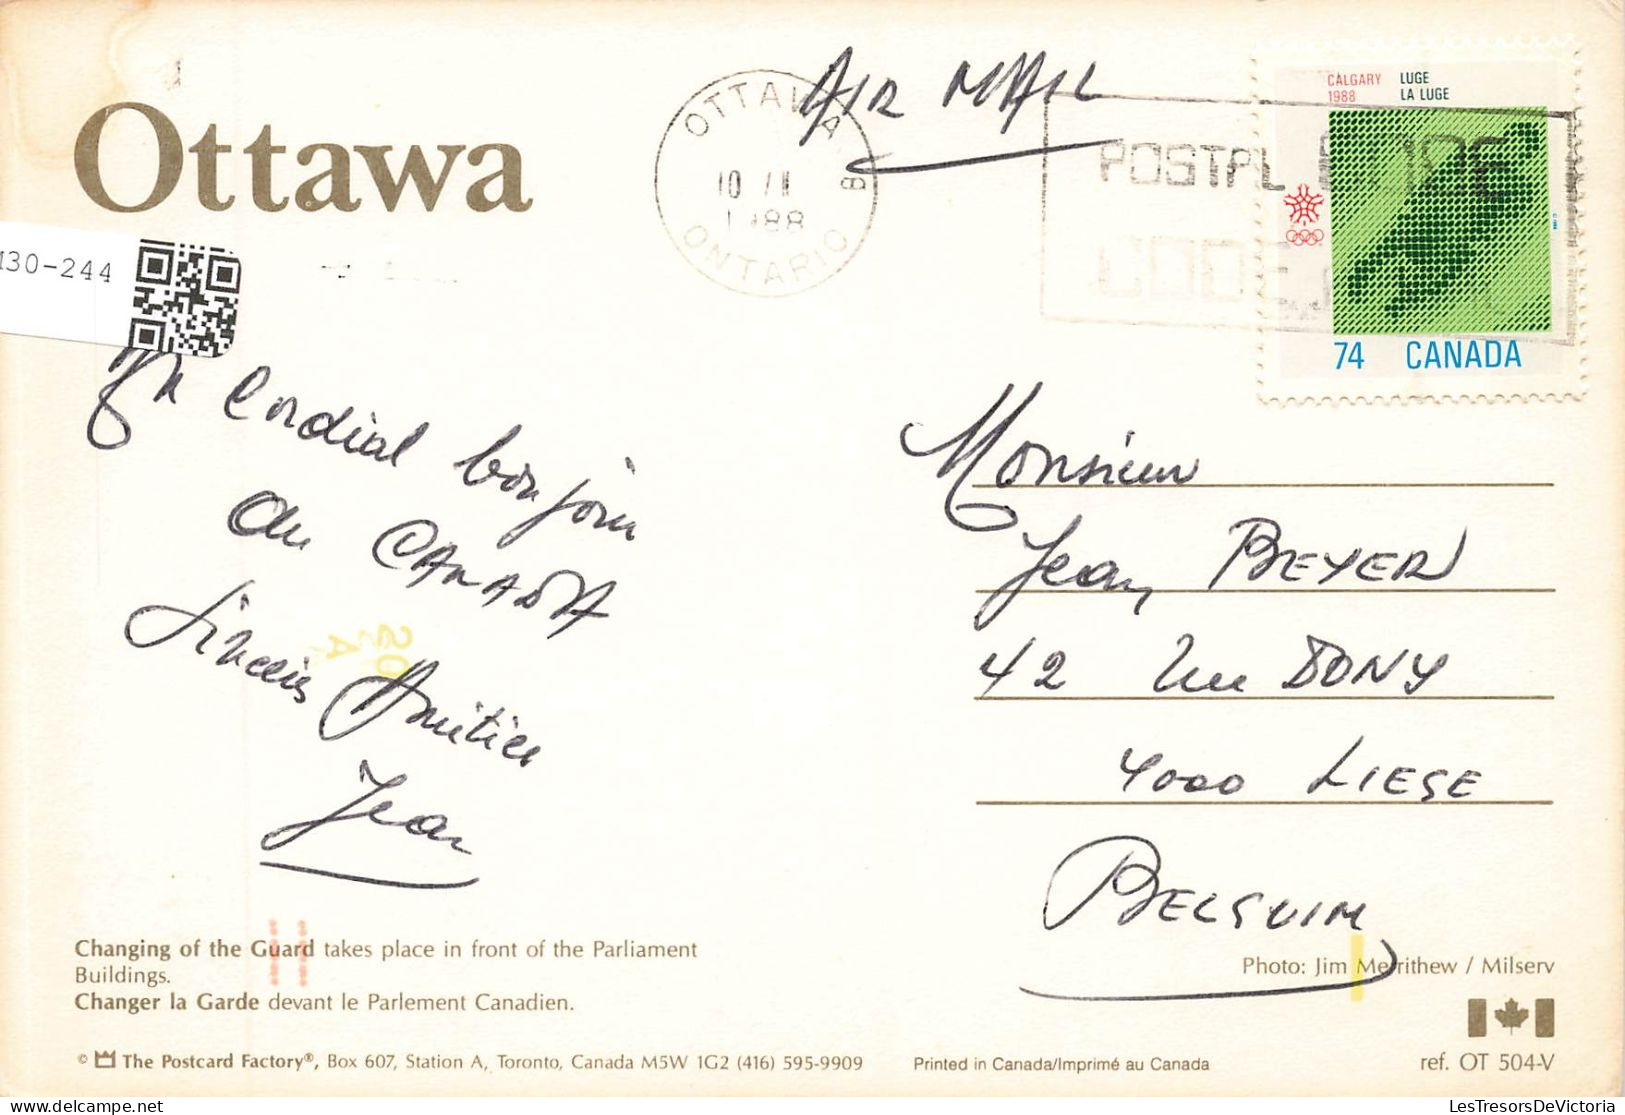 Ottawa
AIR MAIL
OTTAWA
10 / II
1988
B
ONTARIO
POSTAL CODE
CODE
CALGARY 1988
LUGE
LA LUGE
74 CANADA
130-244
Un cordial bonjour
du CANADA
Sincères Amitiés
Jean
Monsieur
Jean BEYER
42 rue DONY
4000 LIEGE
BELGUIM
Changing of the Guard takes place in front of the Parliament
Buildings.
Changer la Garde devant le Parlement Canadien.
Photo: Jim Merrithew / Milserv
© The Postcard Factory®, Box 607, Station A, Toronto, Canada M5W 1G2 (416) 595-9909
Printed in Canada/Imprimé au Canada
ref. OT 504-V
LesTresorsDeVictoria